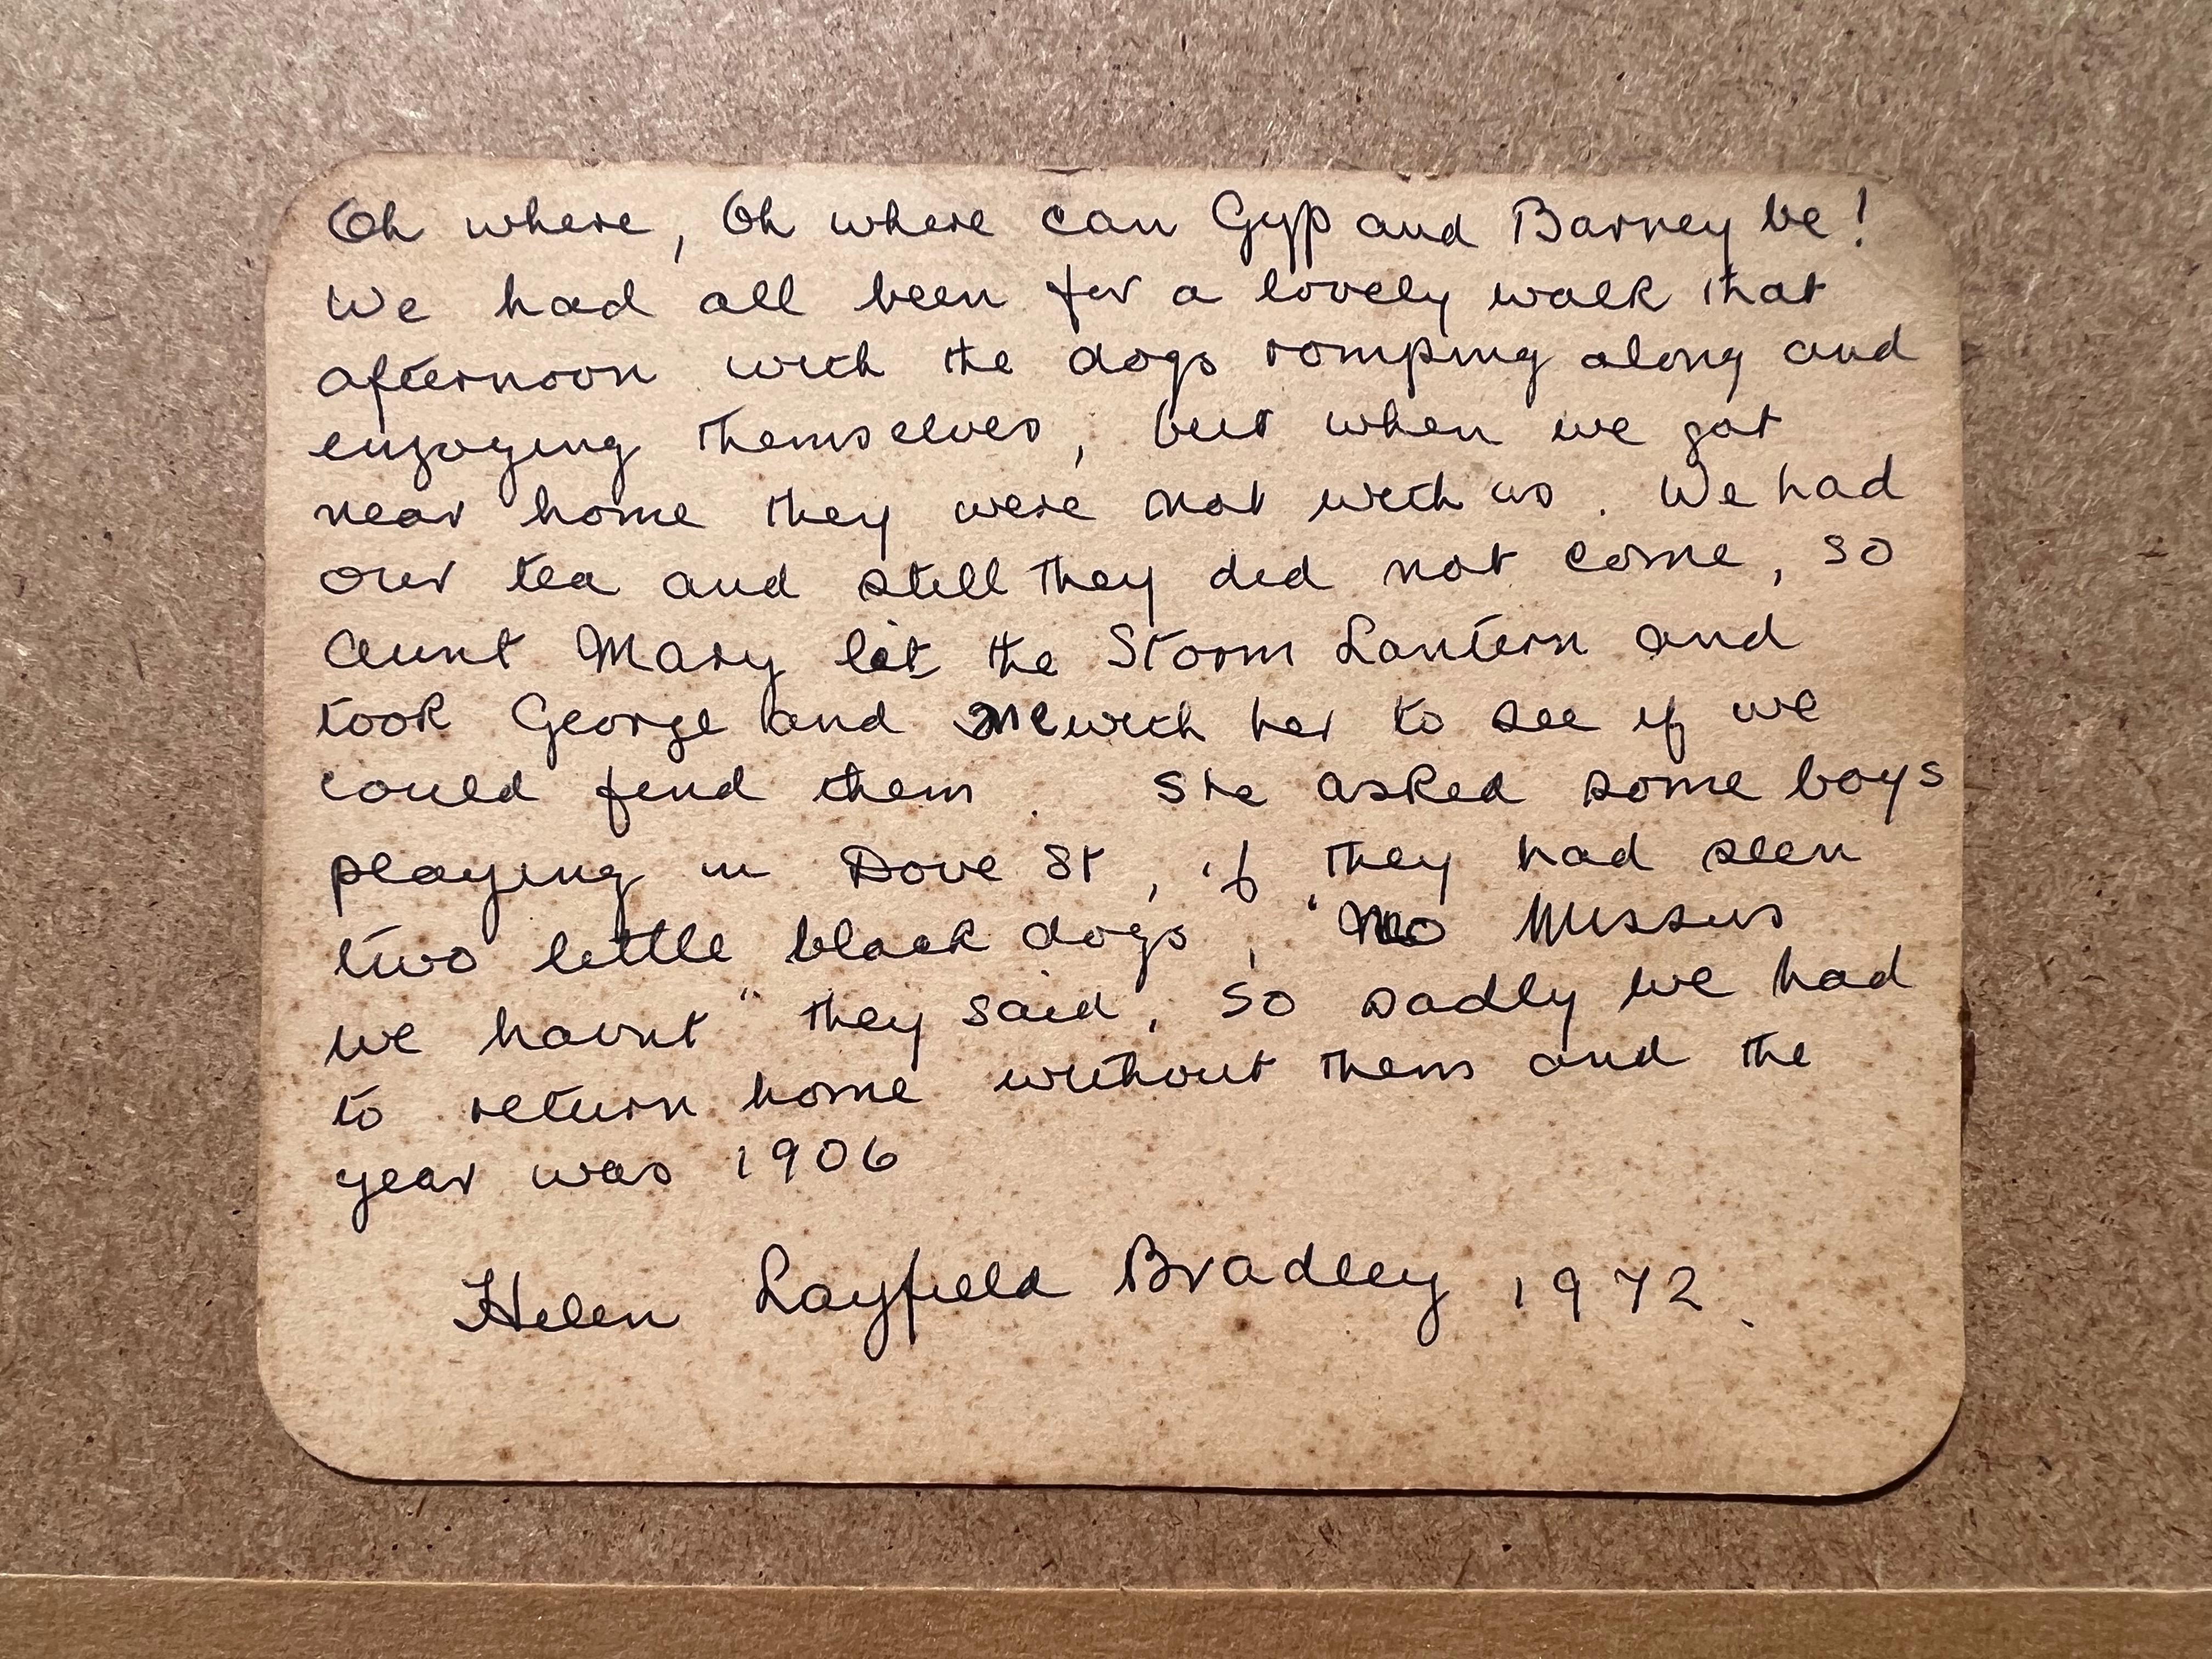 Oh where, Oh where can Gyp and Barney be!
We had all been for a lovely walk that
afternoon with the dogs romping along and
enjoying themselves, but when we got
near home they were not with us. We had
our tea and still they did not come, so
Aunt Mary lit the Storm Lantern and
took George and me with her to see if we
could find them. She asked some boys
playing in Dove St, if they had seen
two little black dogs, "No Missus
we havnt" they said, so sadly we had
to return home without them and the
year was 1906
Helen Layfield Bradley 1972.